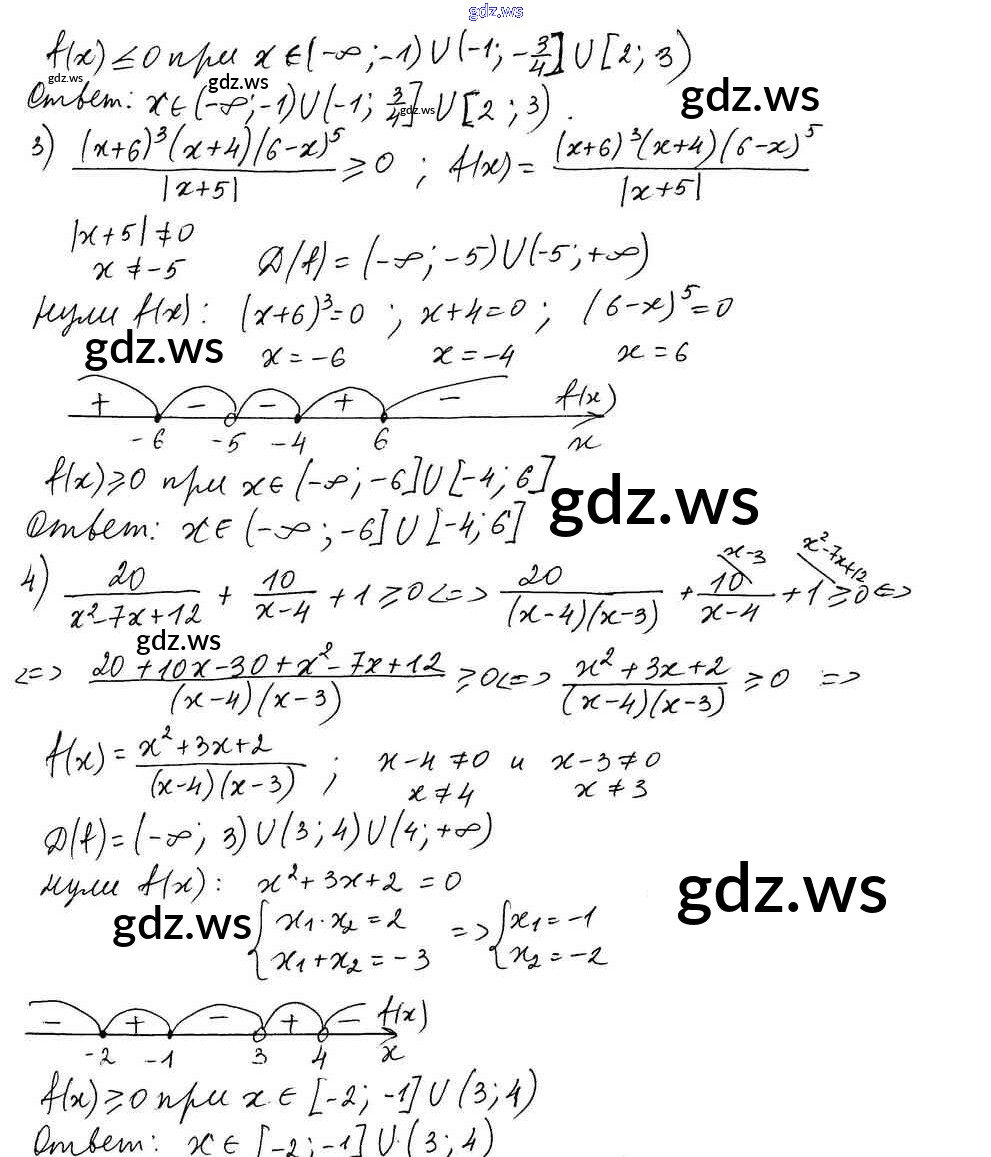 gdz.ws
f(x) ≤ 0 при x ∈ (-∞; -1) ∪ (-1; -3/4] ∪ [2; 3)
gdz.ws gdz.ws gdz.ws
Ответ: x ∈ (-∞; -1) ∪ (-1; 3/4] ∪ [2; 3).
gdz.ws
3) (x+6)³(x+4)(6-x)⁵ / |x+5| ≥ 0 ; f(x) = (x+6)³(x+4)(6-x)⁵ / |x+5|
|x+5| ≠ 0
x ≠ -5 D(f) = (-∞; -5) ∪ (-5; +∞)
нули f(x): (x+6)³=0 ; x+4=0 ; (6-x)⁵=0
gdz.ws x = -6 x = -4 x = 6
+ - - + - f(x)
-6 -5 -4 6 x
f(x) ≥ 0 при x ∈ (-∞; -6] ∪ [-4; 6]
gdz.ws
Ответ: x ∈ (-∞; -6] ∪ [-4; 6]
x-3 x²-7x+12
4) 20/(x²-7x+12) + 10/(x-4) + 1 ≥ 0 <=> 20/((x-4)(x-3)) + 10/(x-4) + 1 ≥ 0 <=>
gdz.ws
<=> (20+10x-30+x²-7x+12)/((x-4)(x-3)) ≥ 0 <=> (x²+3x+2)/((x-4)(x-3)) ≥ 0 =>
f(x) = (x²+3x+2)/((x-4)(x-3)) ; x-4 ≠ 0 и x-3 ≠ 0
x ≠ 4 x ≠ 3
D(f) = (-∞; 3) ∪ (3; 4) ∪ (4; +∞)
нули f(x): x²+3x+2 = 0
gdz.ws gdz.ws
{ x₁·x₂ = 2 => { x₁ = -1
x₁+x₂ = -3 x₂ = -2
- + - + - f(x)
-2 -1 3 4 x
f(x) ≥ 0 при x ∈ [-2; -1] ∪ (3; 4)
Ответ: x ∈ [-2; -1] ∪ (3; 4)